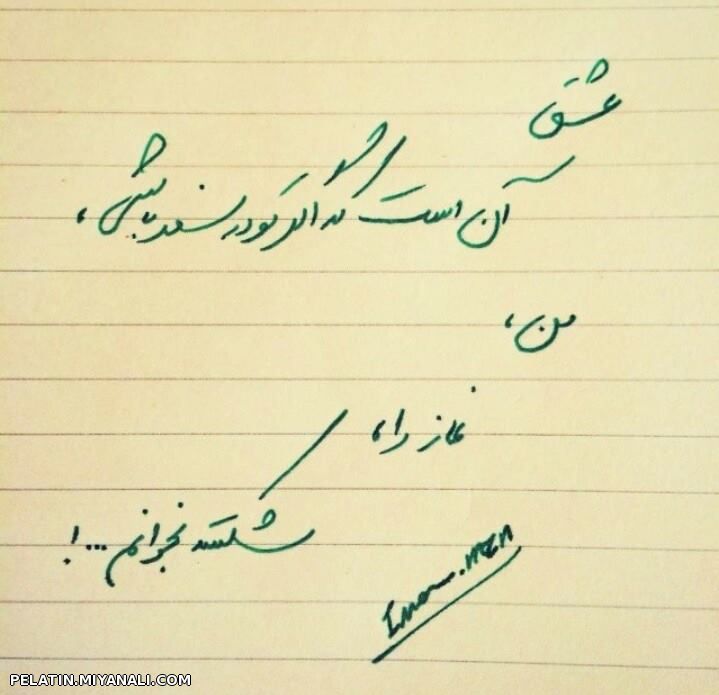 عشق
آن است که اگر تو در سفر باشی،
من،
نماز را،
شکسته بخوانم...!
PELATIN.MIYANALI.COM